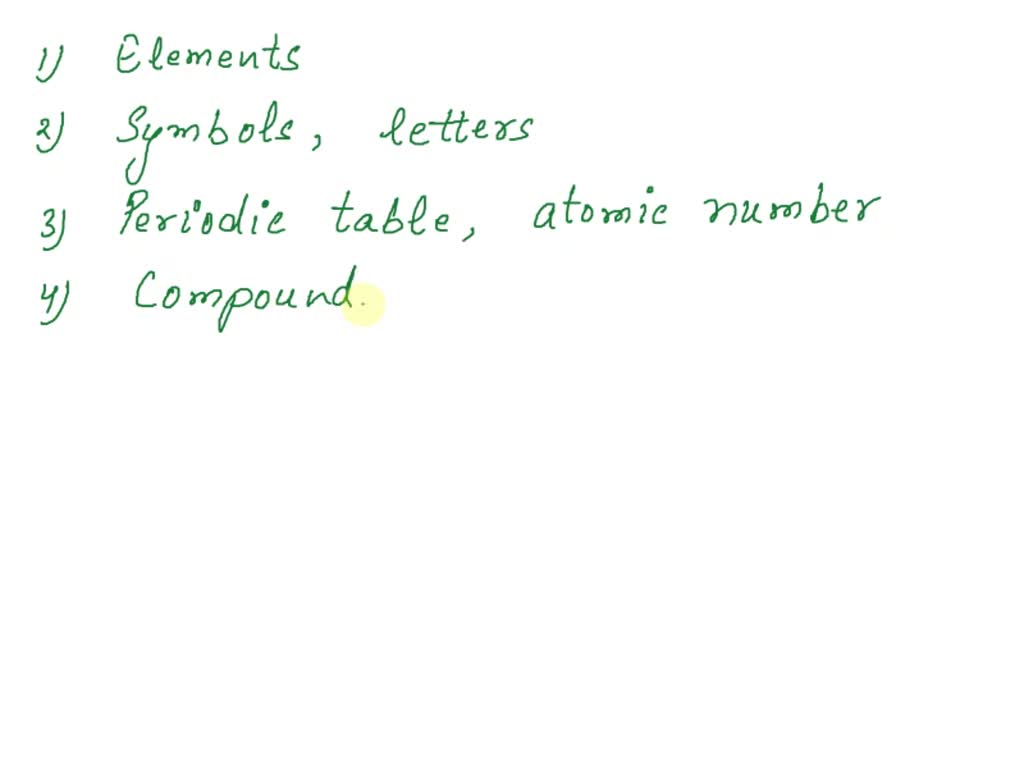 1) Elements
2) Symbols, letters
3) Periodic table, atomic number
4) Compound.